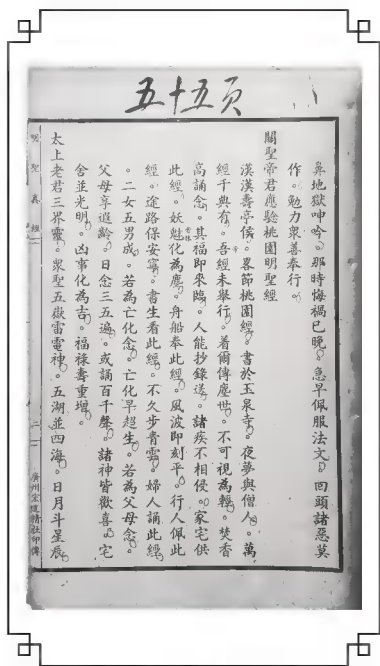 五十五頁
鼻地獄呻吟。那時悔禍已晚。急早佩服法文。回頭諸惡莫
作。勉力衆善奉行。
關聖帝君應驗桃園明聖經
漢漢壽亭侯。畧節桃園經。書於玉泉寺。夜夢與僧人。萬
經千典有。吾經未舉行。着爾傳塵世。不可視為輕。焚香
高誦念。其福即來臨。人能抄錄送。諸疾不相侵。家宅供
此經。妖魅化為塵。舟船奉此經。風波即刻平。行人佩此
經。途路保安寧。書生看此經。不久步青雲。婦人誦此經
。二女五男成。若為亡化念。亡化早超生。若為父母念。
父母享遐齡。日念三五遍。或誦百千聲。諸神皆歡喜。宅
舍並光明。凶事化為吉。福祿壽重增。
太上老君三界靈。衆聖五嶽雷電神。五湖並四海。日月斗星辰。
明聖真經
二
廣州宗道精社印傳